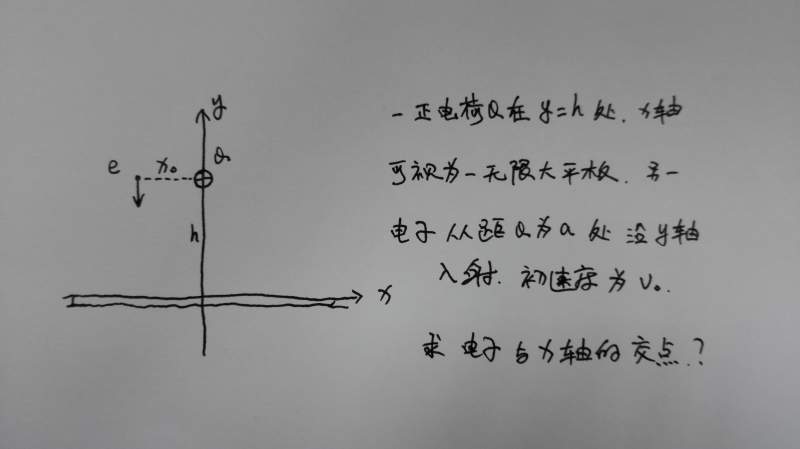 y
e
x₀
Q
h
x
一正电荷Q在 y=h 处. x轴
可视为一无限大平板. 另一
电子从距Q为a处沿y轴
入射. 初速度为v₀.
求电子与x轴的交点?